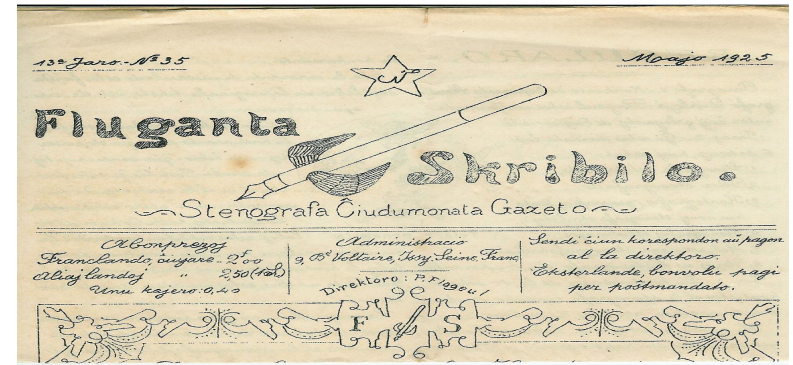 13ª Jaro.-Nº 35
Majo 1925
Fluganta
Skribilo.
Stenografa Ĉiudumonata Gazeto
Abonprezoj
Franclando, ĉiujare - 2f00
Aliaj landoj " 2,50
Unu kajero: 0,40
Administracio
9, Bd Voltaire, Issy, Seine, Franc.
Direktoro: P. Flageul
Sendi ĉiun korespondon aŭ pagon
al la direktoro.
Eksterlande, bonvolu pagi
per poŝtmandato.
F S